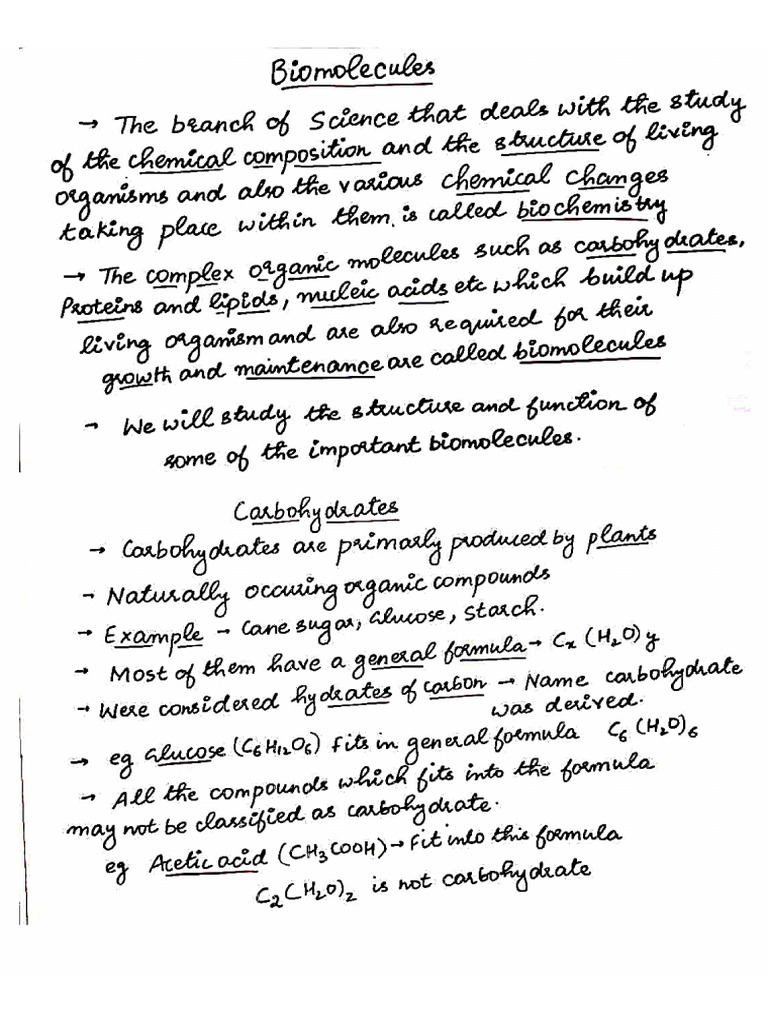 Biomolecules
→ The branch of Science that deals with the study
of the chemical composition and the structure of living
organisms and also the various chemical changes
taking place within them. is called biochemistry
→ The complex organic molecules such as carbohydrates,
Proteins and lipids, nucleic acids etc which build up
living organism and are also required for their
growth and maintenance are called biomolecules
→ We will study the structure and function of
some of the important biomolecules.
Carbohydrates
→ Carbohydrates are primarly produced by plants
→ Naturally occuring organic compounds
→ Example → Cane sugar, Glucose, Starch.
→ Most of them have a general formula → Cx (H2O) y
→ Were considered hydrates of carbon → Name carbohydrate
was derived.
→ eg Glucose (C6H12O6) fits in general formula C6 (H2O)6
→ All the compounds which fits into the formula
may not be classified as carbohydrate.
eg Acetic acid (CH3COOH) → Fit into this formula
C2(H2O)2 is not carbohydrate